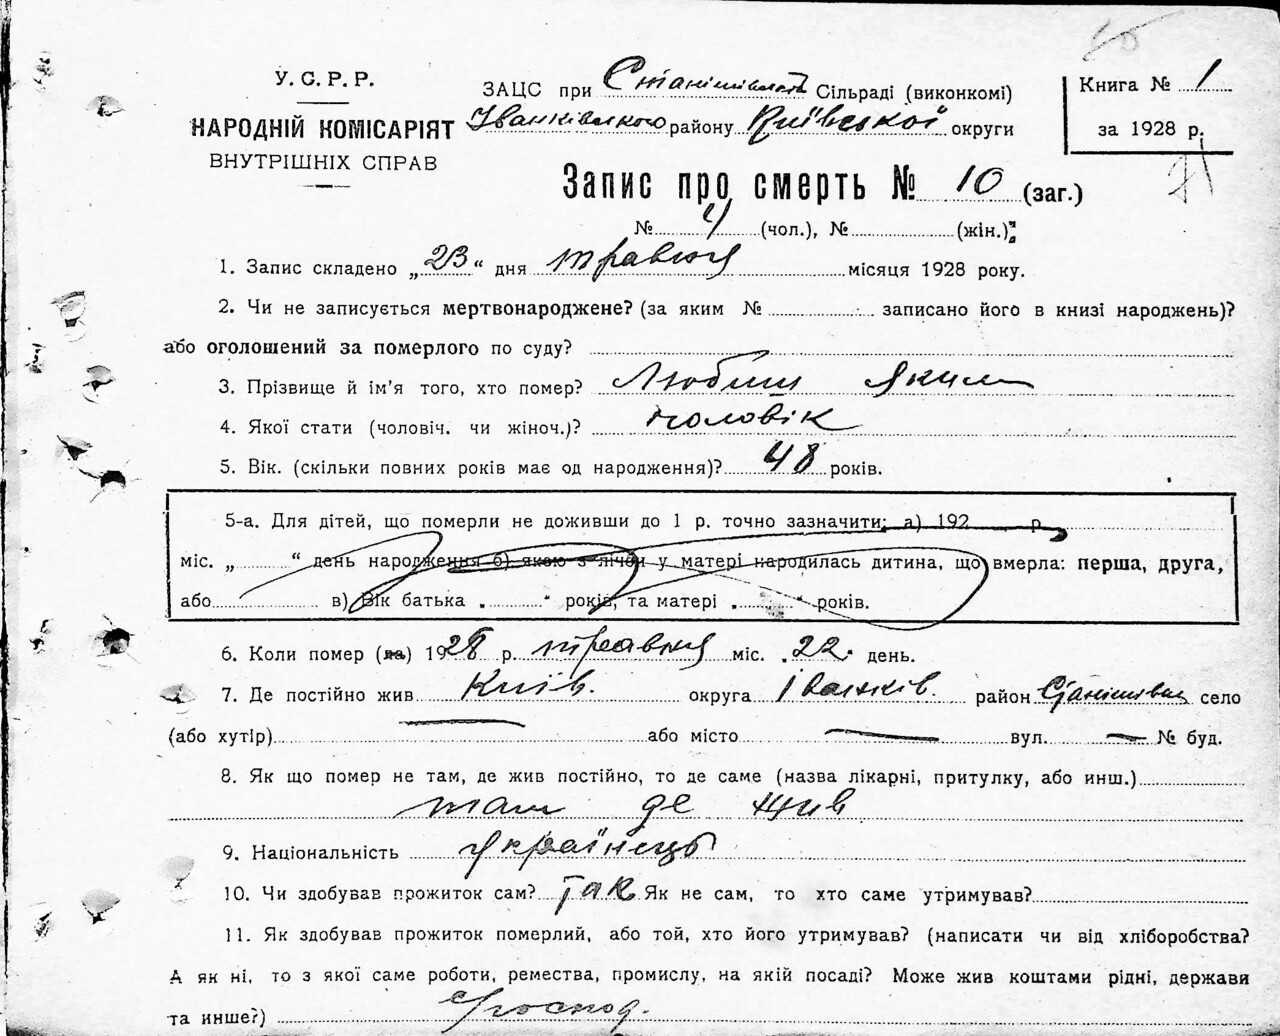 У. С. Р. Р.
НАРОДНІЙ КОМІСАРІЯТ
ВНУТРІШНІХ СПРАВ
ЗАЦС при Сільраді (виконкомі)
Іванківського району Київської округи
Книга № 1
за 1928 р.
Запис про смерть № 10 (заг.)
№ 4 (чол.), № (жін.):
1. Запис складено „23“ дня травня місяця 1928 року.
2. Чи не записується мертвонароджене? (за яким № записано його в книзі народжень)?
або оголошений за померлого по суду?
3. Прізвище й ім'я того, хто помер? Яким
4. Якої стати (чоловіч. чи жіноч.)? чоловік
5. Вік. (скільки повних років має од народження)? 48 років.
5-а. Для дітей, що померли не доживши до 1 р. точно зазначити: а) 192 р.
міс. „ “ день народження б) якою з лічби у матері народилась дитина, що вмерла: перша, друга,
або в) Вік батька „ “ років, та матері „ “ років.
6. Коли помер (ла) 1928 р. травня міс. 22. день.
7. Де постійно жив Київ. округа Іванків. район село
(або хутір) або місто вул. № буд.
8. Як що помер не там, де жив постійно, то де саме (назва лікарні, притулку, або инш.)
там де жив
9. Національність українець
10. Чи здобував прожиток сам? так Як не сам, то хто саме утримував?
11. Як здобував прожиток померлий, або той, хто його утримував? (написати чи від хліборобства?
А як ні, то з якої саме роботи, ремества, промислу, на якій посаді? Може жив коштами рідні, держави
та инше?)